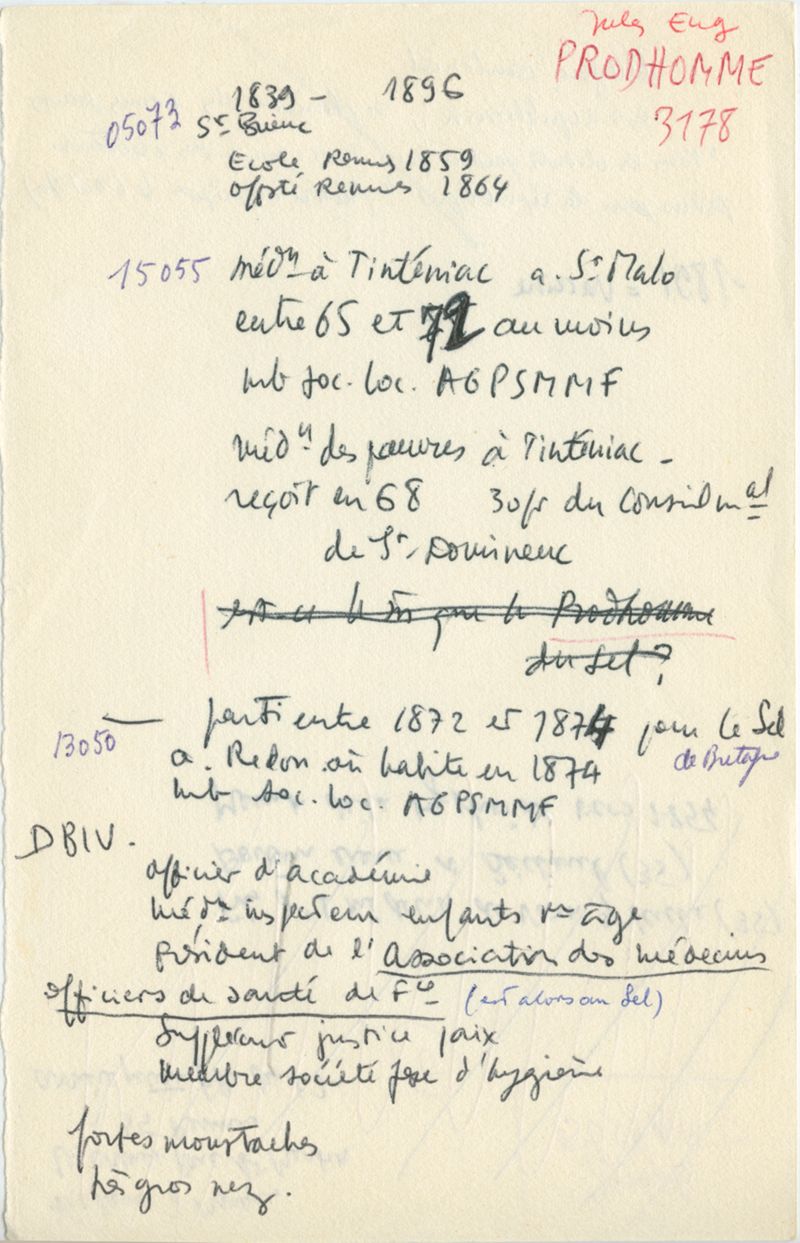 Jules Eug
PRODHOMME
3178
1839 - 1896
05073 St Brieuc
Ecole Rennes 1859
offsté Rennes 1864
15055 médn à Tinténiac a. St Malo
entre 65 et 72 au moins
mb soc. loc. AGPSMMF
médn des pauvres à Tinténiac -
reçoit en 68 30fr du Conseil mal
de St. Domineuc
est-ce le m que le Prodhomme
du Sel ?
— parti entre 1872 et 1874 pour le Sel
13050 de Bretagne
a. Redon où habite en 1874
mb soc. loc. AGPSMMF
DBIV.
officier d'académie
médn inspecteur enfants 1er âge
président de l'Association des médecins
officiers de santé de Fce (est alors au Sel)
Suppléant justice paix
membre société fse d'hygiène
fortes moustaches
très gros nez.